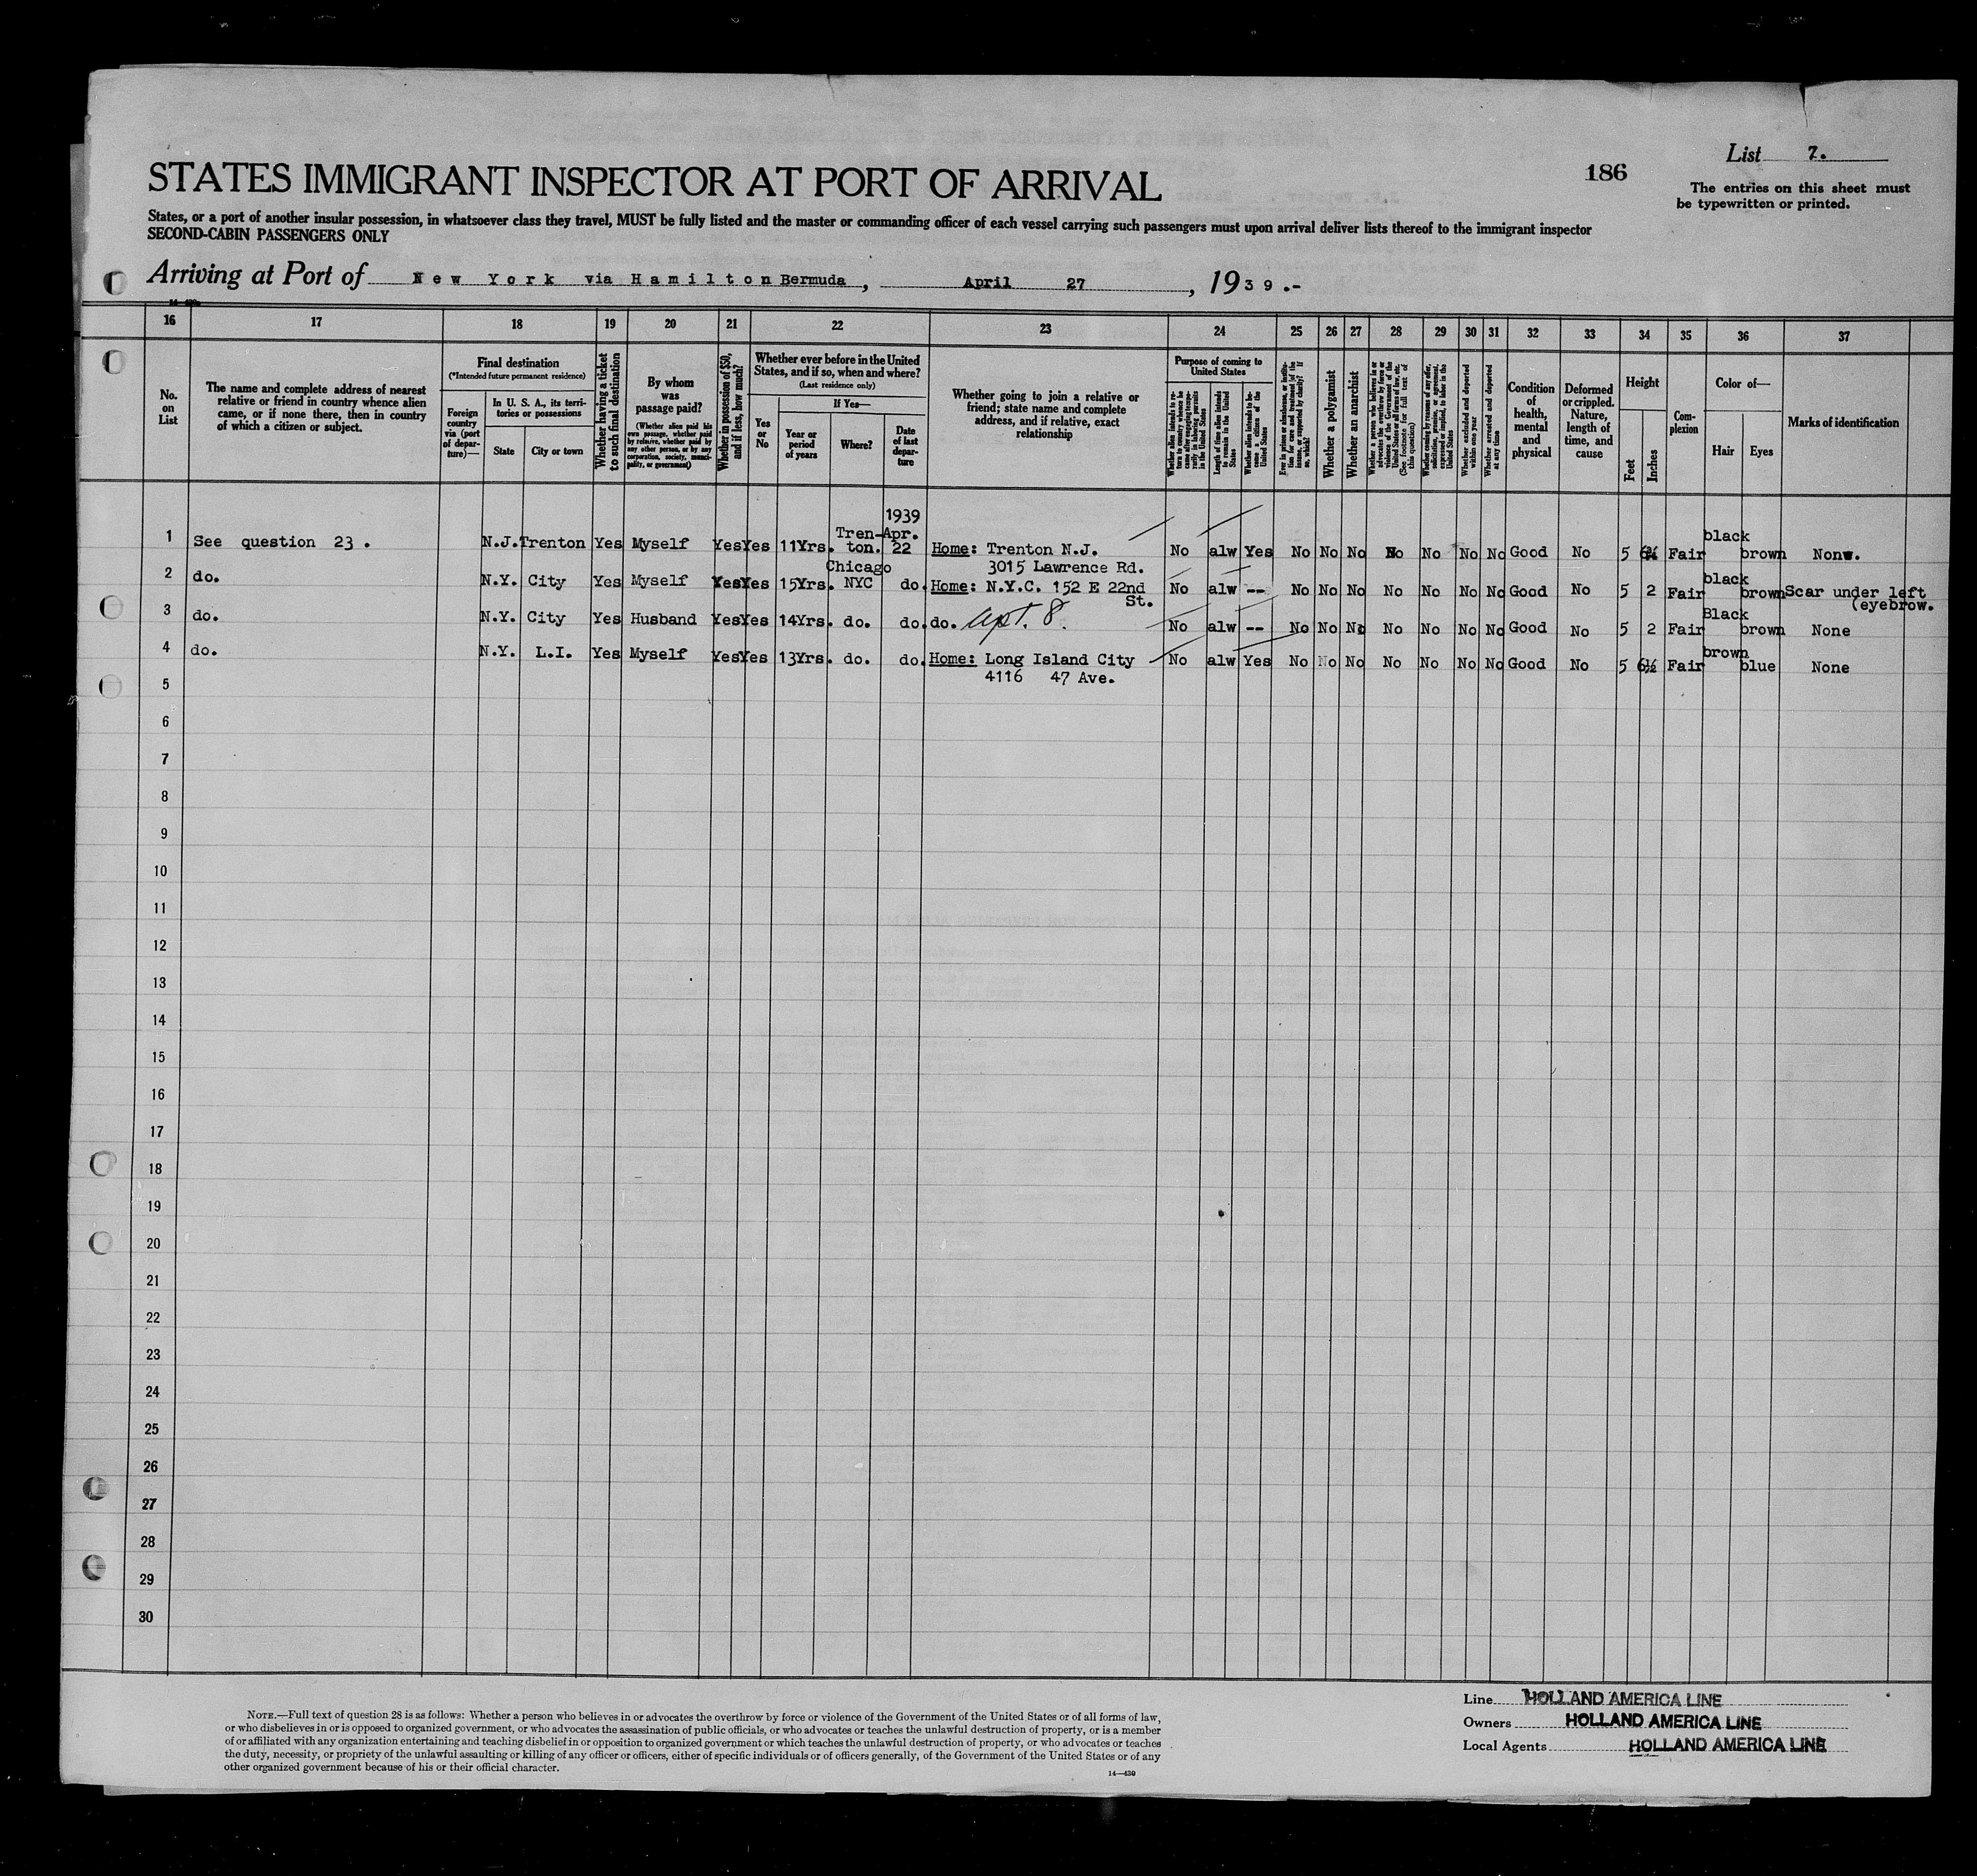 List 7.
186
The entries on this sheet must
be typewritten or printed.
STATES IMMIGRANT INSPECTOR AT PORT OF ARRIVAL
States, or a port of another insular possession, in whatsoever class they travel, MUST be fully listed and the master or commanding officer of each vessel carrying such passengers must upon arrival deliver lists thereof to the immigrant inspector
SECOND-CABIN PASSENGERS ONLY
Arriving at Port of New York via Hamilton Bermuda, April 27, 1939.-
16 17 18 19 20 21 22 23 24 25 26 27 28 29 30 31 32 33 34 35 36 37
No.
on
List
The name and complete address of nearest
relative or friend in country whence alien
came, or if none there, then in country
of which a citizen or subject.
Final destination
(*Intended future permanent residence)
Foreign
country
via (port
of depar-
ture)—
In U. S. A., its terri-
tories or possessions
State
City or town
Whether having a ticket
to such final destination
By whom
was
passage paid?
(Whether alien paid his
own passage, whether paid
by relative, whether paid by
any other person, or by any
corporation, society, munici-
pality, or government)
Whether in possession of $50,
and if less, how much?
Whether ever before in the United
States, and if so, when and where?
(Last residence only)
Yes
or
No
If Yes—
Year or
period
of years
Where?
Date
of last
depar-
ture
Whether going to join a relative or
friend; state name and complete
address, and if relative, exact
relationship
Purpose of coming to
United States
Whether alien intends to re-
turn to country whence he
came after engaging tempo-
rarily in laboring pursuits
in the United States
Length of time alien intends
to remain in the United
States
Whether alien intends to be-
come a citizen of the
United States
Ever in prison or almshouse, or institu-
tion for care and treatment of the
insane, or supported by charity? If
so, which?
Whether a polygamist
Whether an anarchist
Whether a person who believes in or
advocates the overthrow by force or
violence of the Government of the
United States or all forms of law, etc.
(See footnote for full text of
this question)
Whether coming by reason of any offer,
solicitation, promise, or agreement,
expressed or implied, to labor in the
United States
Whether excluded and deported
within one year
Whether arrested and deported
at any time
Condition
of
health,
mental
and
physical
Deformed
or crippled.
Nature,
length of
time, and
cause
Height
Feet
Inches
Com-
plexion
Color of—
Hair
Eyes
Marks of identification
1939
Tren- Apr. black
1 See question 23. N.J. Trenton Yes Myself Yes Yes 11Yrs. ton. 22 Home: Trenton N.J. No alw Yes No No No No No No No Good No 5 Fair brown None.
Chicago 3015 Lawrence Rd. black
2 do. N.Y. City Yes Myself Yes Yes 15Yrs. NYC do. Home: N.Y.C. 152 E 22nd No alw -- No No No No No No No Good No 5 2 Fair brown Scar under left
St. (eyebrow.
Black
3 do. N.Y. City Yes Husband Yes Yes 14Yrs. do. do. do. apt. 8. No alw -- No No No No No No No Good No 5 2 Fair brown None
brown
4 do. N.Y. L.I. Yes Myself Yes Yes 13Yrs. do. do. Home: Long Island City No alw Yes No No No No No No No Good No 5 6½ Fair blue None
4116 47 Ave.
5
6
7
8
9
10
11
12
13
14
15
16
17
18
19
20
21
22
23
24
25
26
27
28
29
30
NOTE.—Full text of question 28 is as follows: Whether a person who believes in or advocates the overthrow by force or violence of the Government of the United States or of all forms of law,
or who disbelieves in or is opposed to organized government, or who advocates the assassination of public officials, or who advocates or teaches the unlawful destruction of property, or is a member
of or affiliated with any organization entertaining and teaching disbelief in or opposition to organized government or which teaches the unlawful destruction of property, or who advocates or teaches
the duty, necessity, or propriety of the unlawful assaulting or killing of any officer or officers, either of specific individuals or of officers generally, of the Government of the United States or of any
other organized government because of his or their official character.
14—430
Line HOLLAND AMERICA LINE
Owners HOLLAND AMERICA LINE
Local Agents HOLLAND AMERICA LINE